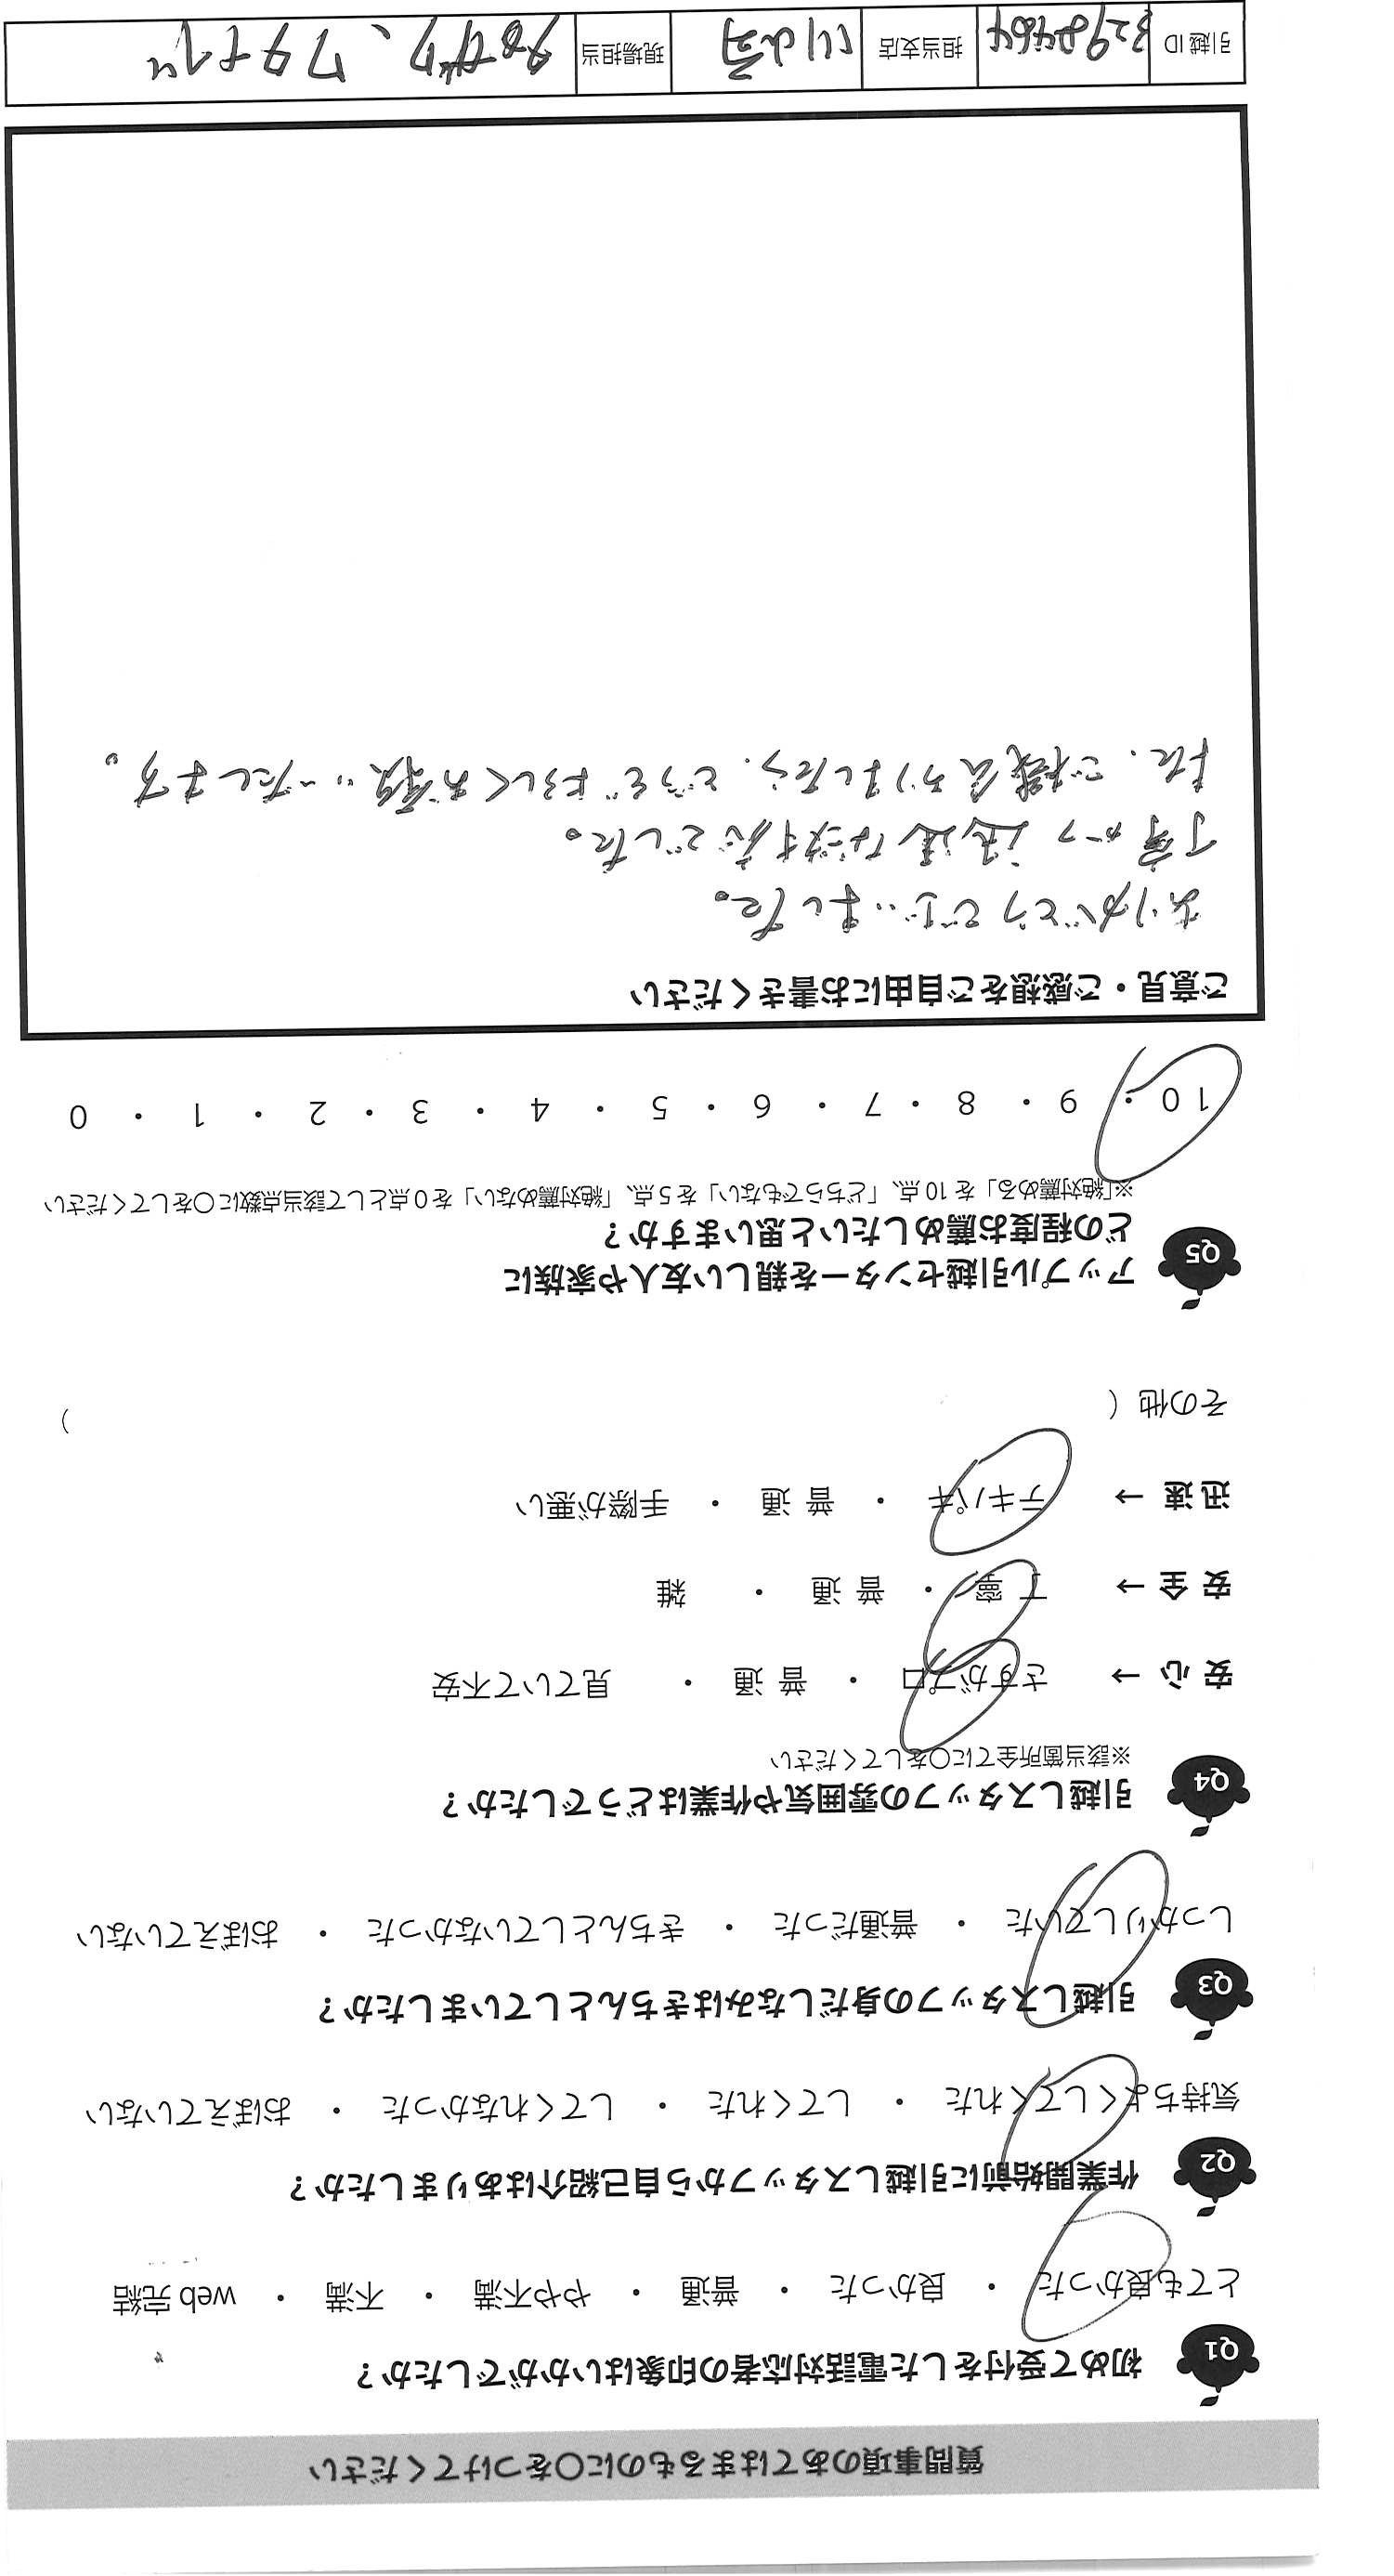 質問事項のあてはまるものに〇をつけてください
Q1 初めて受付をした電話対応者の印象はいかがでしたか？
とても良かった ・ 良かった ・ 普通 ・ やや不満 ・ 不満 ・ web 完結
Q2 作業開始前に引越しスタッフから自己紹介はありましたか？
気持ちよくしてくれた ・ してくれた ・ してくれなかった ・ おぼえていない
Q3 引越しスタッフの身だしなみはきちんとしていましたか？
しっかりしていた ・ 普通だった ・ きちんとしていなかった ・ おぼえていない
Q4 引越しスタッフの雰囲気や作業はどうでしたか？
※該当箇所全てに〇をしてください
安 心 → さすがプロ ・ 普 通 ・ 見ていて不安
安 全 → 丁 寧 ・ 普 通 ・ 雑
迅 速 → テキパキ ・ 普 通 ・ 手際が悪い
その他（ ）
Q5 アップル引越センターを親しい友人や家族に
どの程度お薦めしたいと思いますか？
※「絶対薦める」を 10 点、「どちらでもない」を 5 点、「絶対薦めない」を 0 点として該当点数に〇をしてください
10 ・ 9 ・ 8 ・ 7 ・ 6 ・ 5 ・ 4 ・ 3 ・ 2 ・ 1 ・ 0
ご意見・ご感想をご自由にお書きください
ありがとうございました。
丁寧かつ迅速な対応でした。
また、ご機会ありましたら、どうぞよろしくお願いいたします。
引越 ID 3298464 担当支店 現場担当